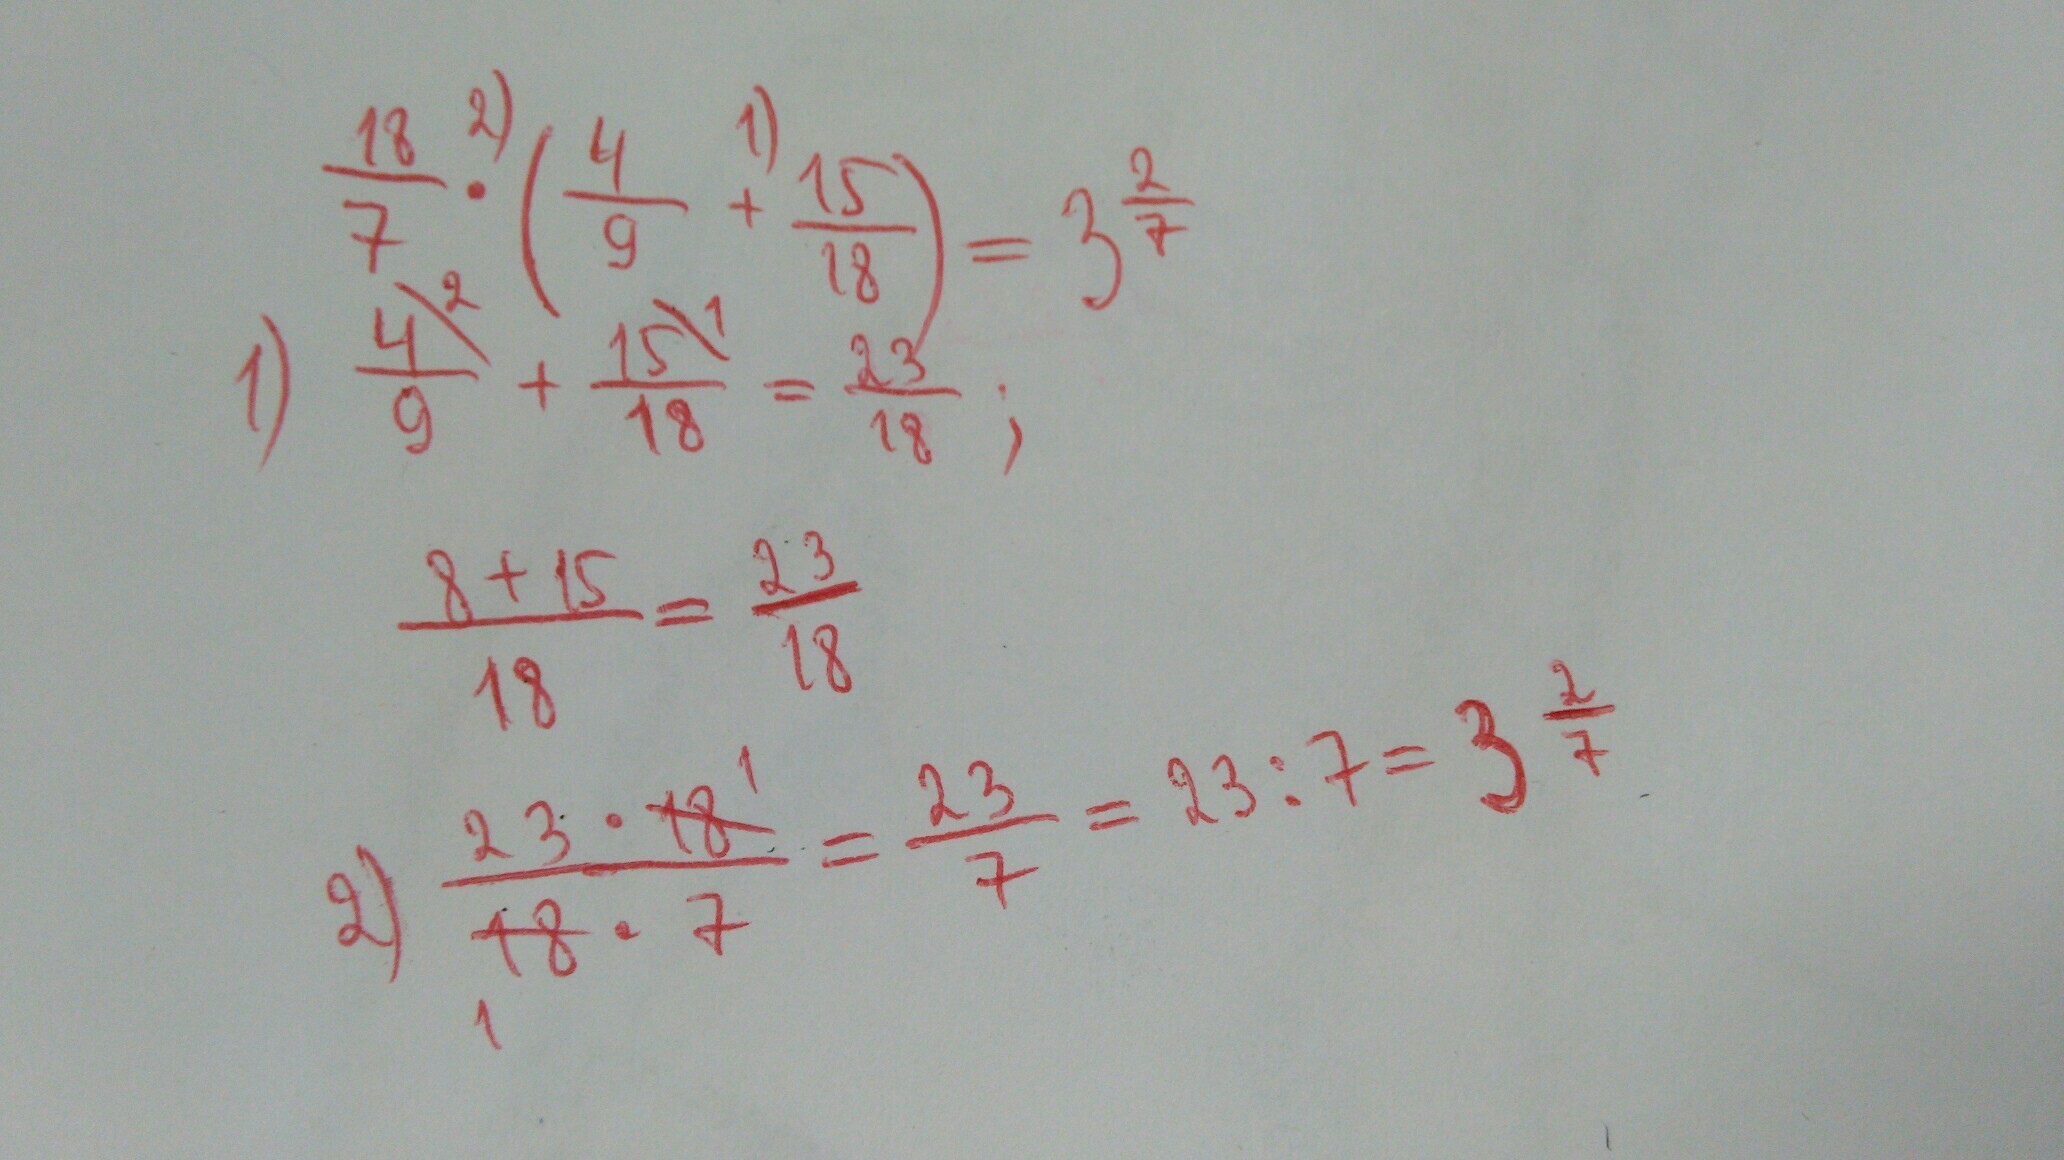 18/7 ·2) (4/9 +1) 15/18) = 3 2/7
1) 4/9 \2 + 15/18 \1 = 23/18 ;
8+15/18 = 23/18
2) 23 · 18 1/18 1 · 7 = 23/7 = 23 : 7 = 3 2/7